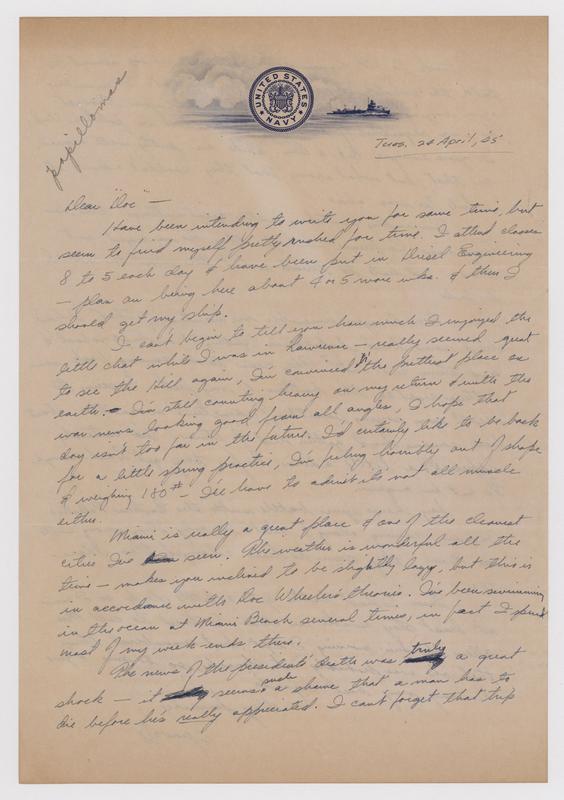 UNITED STATES NAVY
papillomas
Tues. 24 April, '45
Dear "Doc" —
Have been intending to write you for some time, but
seem to find myself pretty rushed for time. I attend classes
8 to 5 each day & have been put in Diesel Engineering
— plan on being here about 4 or 5 more wks. & then I
should get my ship.
I can't begin to tell you how much I enjoyed the
little chat while I was in Lawrence — really seemed great
to see the Hill again, I'm convinced it's the prettiest place on
earth. — I'm still counting heavy on my return & with the
war news looking good from all angles, I hope that
day isn't too far in the future. I'd certainly like to be back
for a little spring practice, I'm feeling horribly out of shape
& weighing 180# — I'll have to admit it's not all muscle
either.
Miami is really a great place & one of the cleanest
cities I've seen. The weather is wonderful all the
time — makes you inclined to be slightly lazy, but this is
in accordance with Doc Wheeler's theories. I've been swimming
in the ocean at Miami Beach several times, in fact I spend
most of my week ends there.
The news of the president's death was truly a great
shock — it seems such a shame that a man has to
die before he's really appreciated. I can't forget that trip